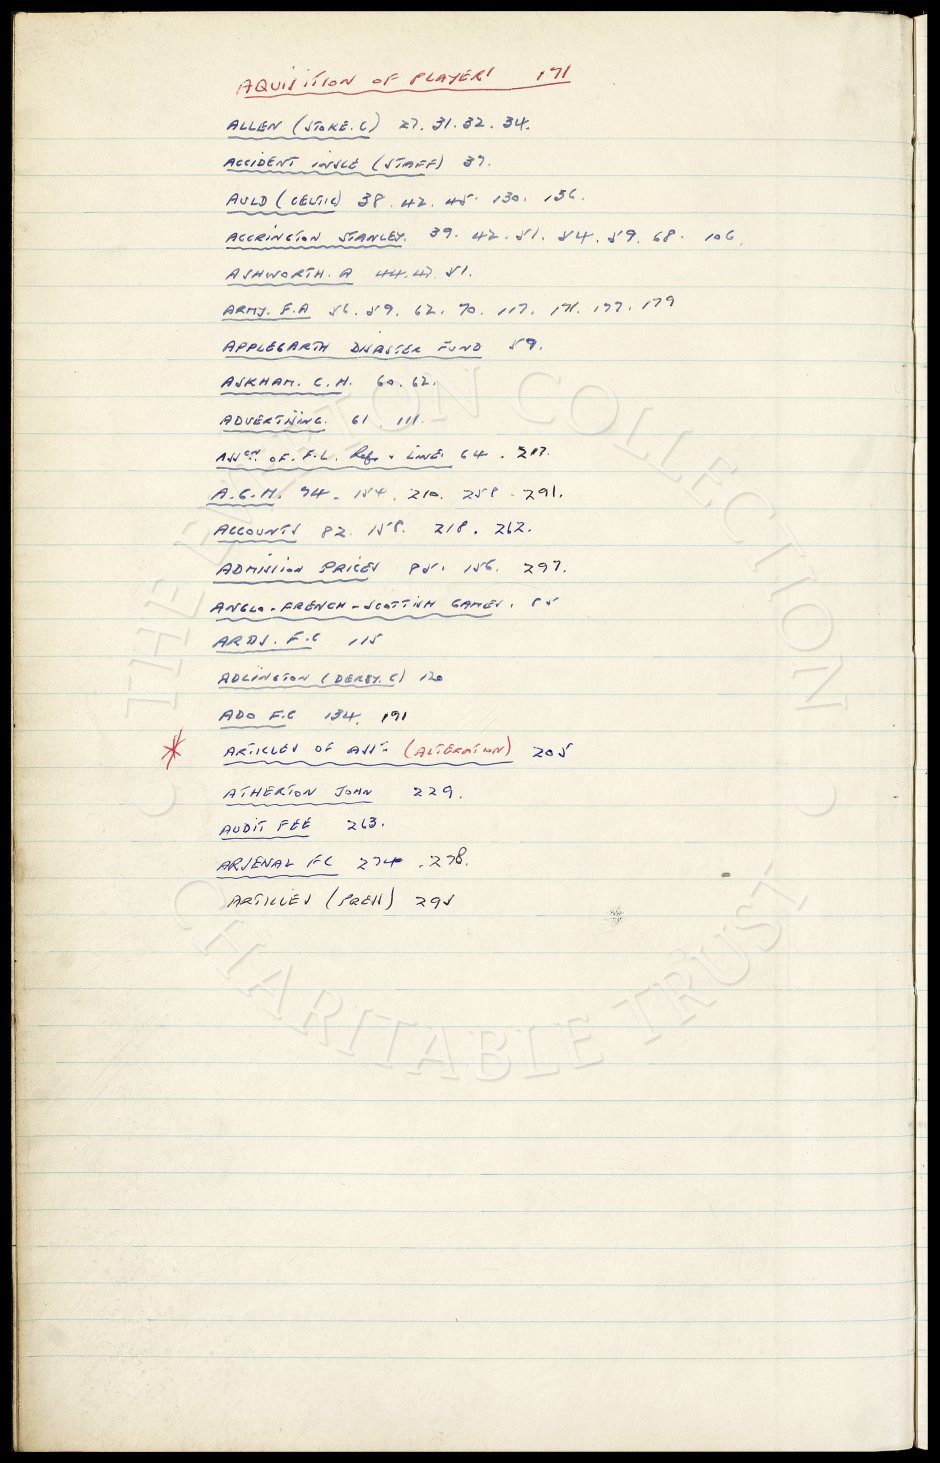 AQUISITION OF PLAYERS 171
ALLEN (STOKE.C) 27. 31. 32. 34.
ACCIDENT INSCE (STAFF) 37.
AULD (CELTIC) 38. 42. 45. 130. 136.
ACCRINGTON STANLEY. 39. 42. 51. 54. 59. 68. 106.
ASHWORTH. A 44. 47. 51.
ARMY. F.A 56. 59. 62. 70. 117. 171. 177. 179
APPLEGARTH DISASTER FUND 59.
ASKHAM. C.M. 60. 62.
ADVERTISING. 61. 111.
ASSON. OF. F.L. Refs. LINE. 64. 217.
A.G.M. 74. 154. 210. 258. 291.
ACCOUNTS 82. 158. 218. 262.
ADMISSION PRICES 85. 156. 297.
ANGLO-FRENCH-SCOTTISH GAMES. 85
ARDS. F.C 115
ADLINGTON (DERBY.C) 120
ADO F.C 134. 191
* ARTICLES OF ASSN: (ALTERATION) 205
ATHERTON JOHN 229.
AUDIT FEE 263.
ARSENAL FC 274. 278.
ARTICLES (PRESS) 295
THE EVERTON COLLECTION
CHARITABLE TRUST